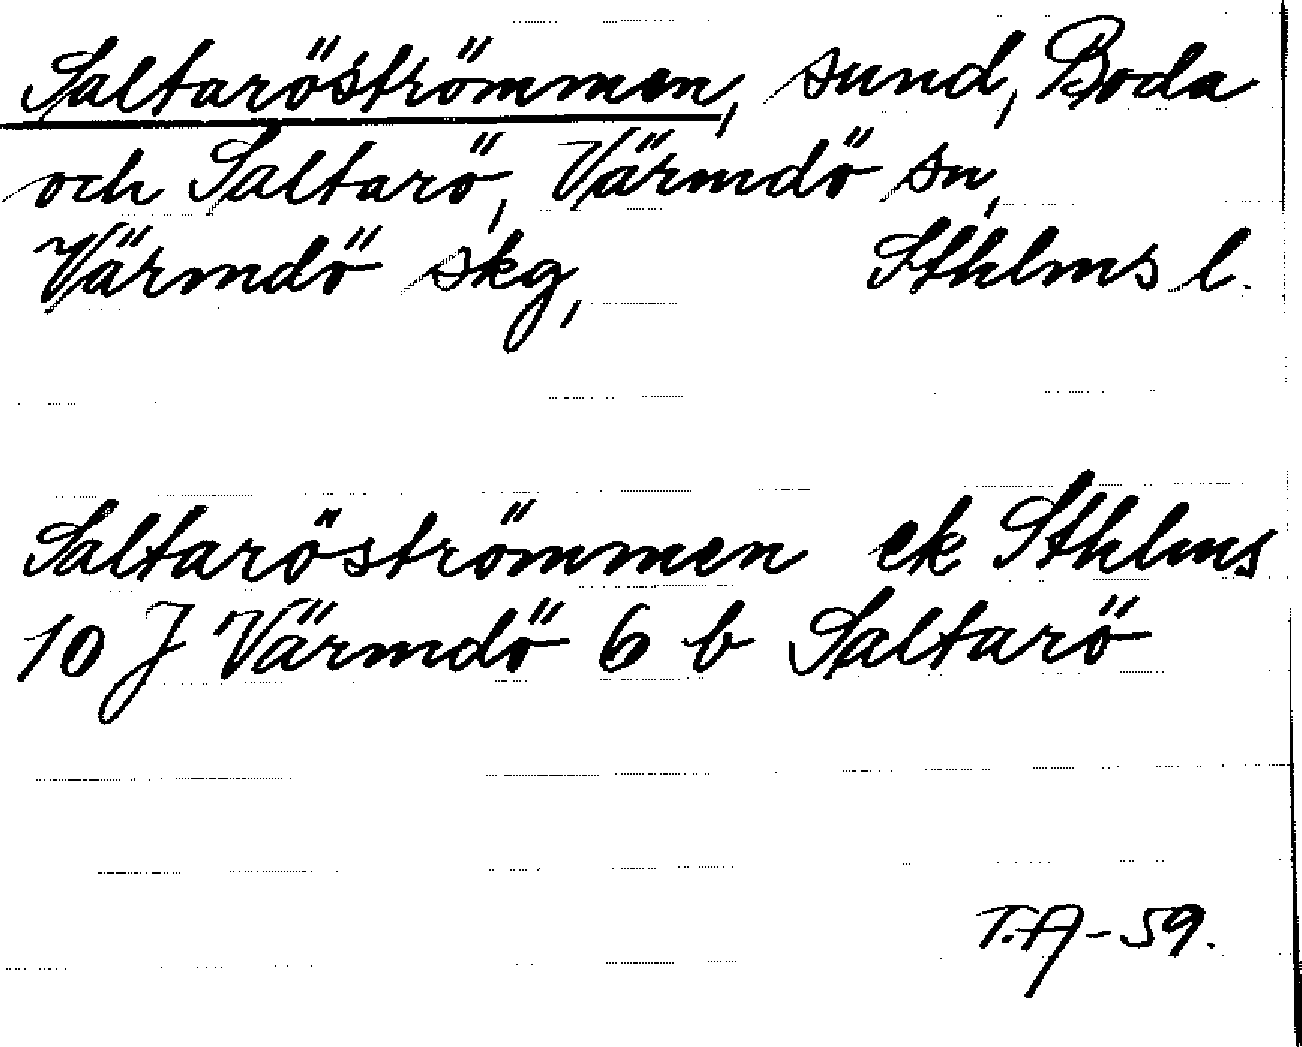 Saltaröströmmen, sund, Boda
och Saltarö, Värmdö sn,
Värmdö skg, Sthlms l.
Saltaröströmmen ek Sthlms
10 J Värmdö 6 b Saltarö
T.A-59.